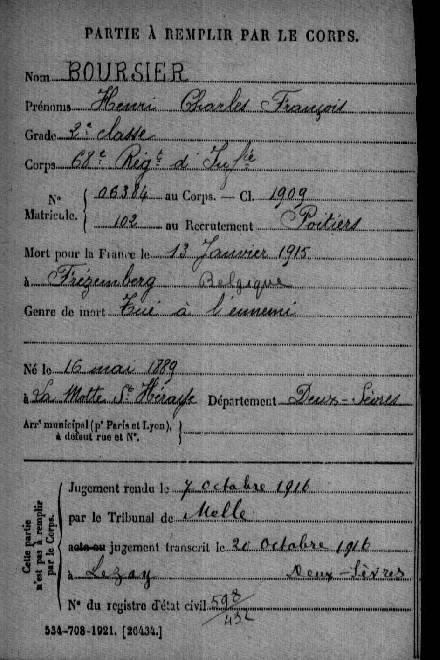 PARTIE À REMPLIR PAR LE CORPS.
Nom BOURSIER
Prénoms Henri Charles François
Grade 2e classe
Corps 68e Régt d'Infie
No Matricule. 06384 au Corps. — Cl. 1909
102 au Recrutement Poitiers
Mort pour la France le 13 Janvier 1915
à Frézemberg Belgique
Genre de mort Tué à l'ennemi
Né le 16 mai 1889
à La Motte St Héraye Département Deux-Sèvres
Arrt municipal (pr Paris et Lyon), à défaut rue et No.
Cette partie n'est pas à remplir par le Corps.
Jugement rendu le 7 octobre 1916
par le Tribunal de Melle
acte ou jugement transcrit le 20 octobre 1916
à Lezay Deux-Sèvres
No du registre d'état civil 598/
534-708-1921. [26434.]